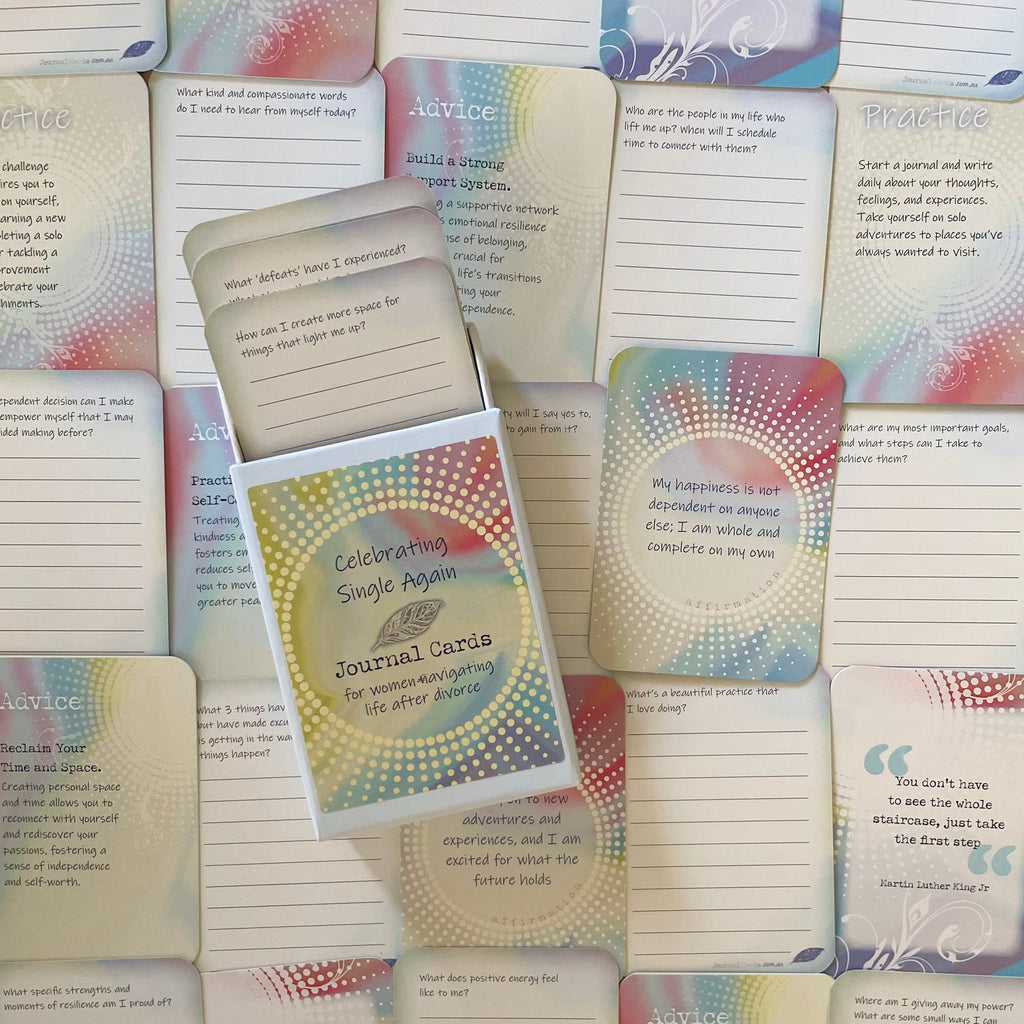 Journal Cards.com.au
Journal Cards.com.au
ctice
challenge
ires you to
on yourself,
arning a new
leting a solo
r tackling a
rovement
ebrate your
hments.
What kind and compassionate words
do I need to hear from myself today?
Advice
Build a Strong
pport System.
g a supportive network
s emotional resilience
nse of belonging,
crucial for
life's transitions
ting your
ependence.
Who are the people in my life who
lift me up? When will I schedule
time to connect with them?
Practice
Start a journal and write
daily about your thoughts,
feelings, and experiences.
Take yourself on solo
adventures to places you've
always wanted to visit.
What 'defeats' have I experienced?
How can I create more space for
things that light me up?
ependent decision can I make
empower myself that I may
ided making before?
Adv
Practi
Self-C
Treating
kindness a
fosters em
reduces sel
you to move
greater pea
ty will I say yes to,
to gain from it?
My happiness is not
dependent on anyone
else; I am whole and
complete on my own
affirmation
what are my most important goals,
and what steps can I take to
achieve them?
Celebrating
Single Again
Journal Cards
for women navigating
life after divorce
Advice
Reclaim Your
Time and Space.
Creating personal space
and time allows you to
reconnect with yourself
and rediscover your
passions, fostering a
sense of independence
and self-worth.
What 3 things hav
but have made excu
is getting in the wa
things happen?
pen to new
adventures and
experiences, and I am
excited for what the
future holds
affirmation
What's a beautiful practice that
I love doing?
Journal Cards.com.au
“You don't have
to see the whole
staircase, just take
the first step”
Martin Luther King Jr
What specific strengths and
moments of resilience am I proud of?
What does positive energy feel
like to me?
Advice
Where am I giving away my power?
What are some small ways I can